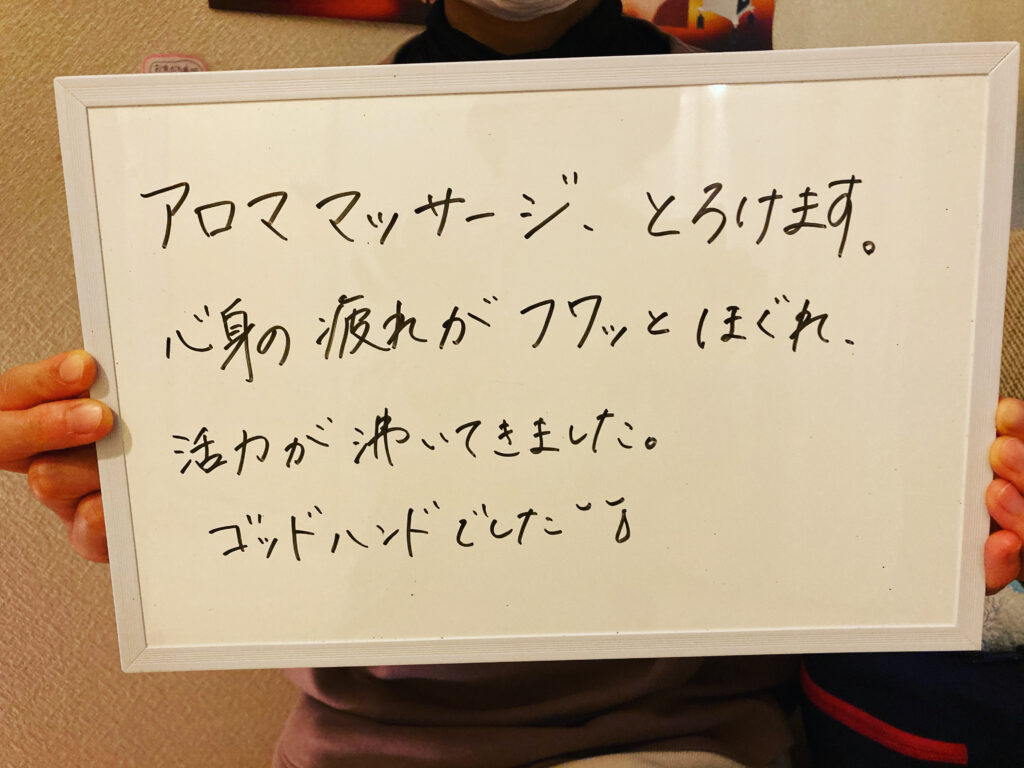 アロママッサージ、とろけます。
心身の疲れがフワッとほぐれ、
活力が沸いてきました。
ゴッドハンドでした